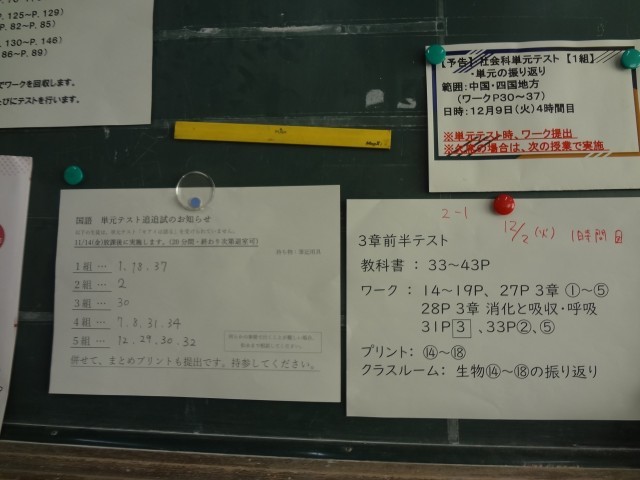 P. 125～129)
P. 82～85)
. 130～P. 146)
86～P. 89)
でワークを回収します。
びにテストを行います。
【予告】社会科単元テスト【1組】
・単元の振り返り
範囲：中国・四国地方
（ワークP30～37）
日時：12月9日（火）4時間目
※単元テスト時、ワーク提出
の場合は、次の授業で実施
国語 単元テスト追追試のお知らせ
11/14(金)放課後に実施します。(20分間・終わり次第退室可)
持ち物：筆記用具
1組 … 1.18.37
2組 … 2
3組 … 30
4組 … 7.8.31.34
5組 … 12.29.30.32
併せて、まとめプリントも提出です。持参してください。
2-1
12/2(火) 1時間目
3章前半テスト
教科書：33～43P
ワーク：14～19P、27P 3章 ①～⑤
28P 3章 消化と吸収・呼吸
31P 3 、33P②、⑤
プリント：⑭～⑱
クラスルーム：生物⑭～⑱の振り返り